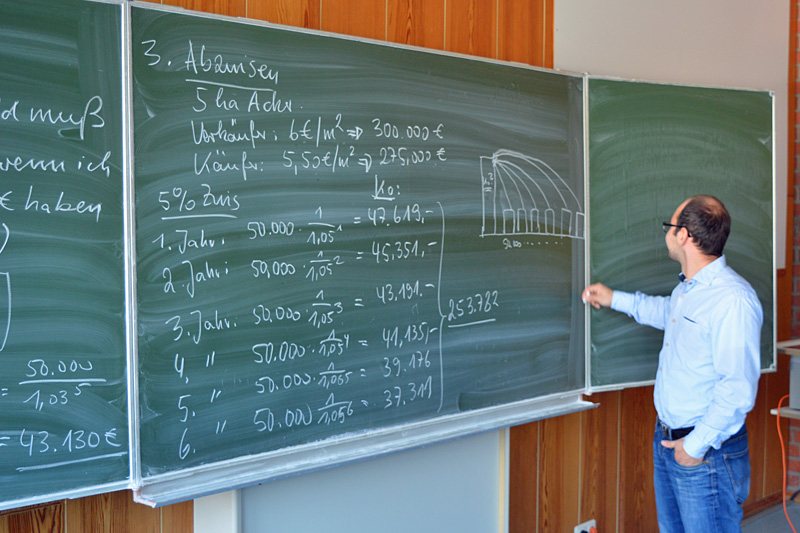 d muß
wenn ich
€ haben
50.000
1,03⁵
= 43.130 €
3. Abzinsen
5 ha Acker
Verkäufer: 6 €/m² ⇒ 300.000 €
Käufer: 5,50 €/m² ⇒ 275,000 €
5% Zins
K₀:
1. Jahr: 50.000 · 1/1,05¹ = 47.619,-
2. Jahr: 50,000 · 1/1,05² = 45,351,-
3. Jahr: 50,000 · 1/1,05³ = 43,191.-
4. " 50.000 · 1/1,05⁴ = 41,135,-
5. " 50.000 · 1/1,05⁵ = 39.176
6. " 50.000 · 1/1,05⁶ = 37.311
253.782
50,000 ......